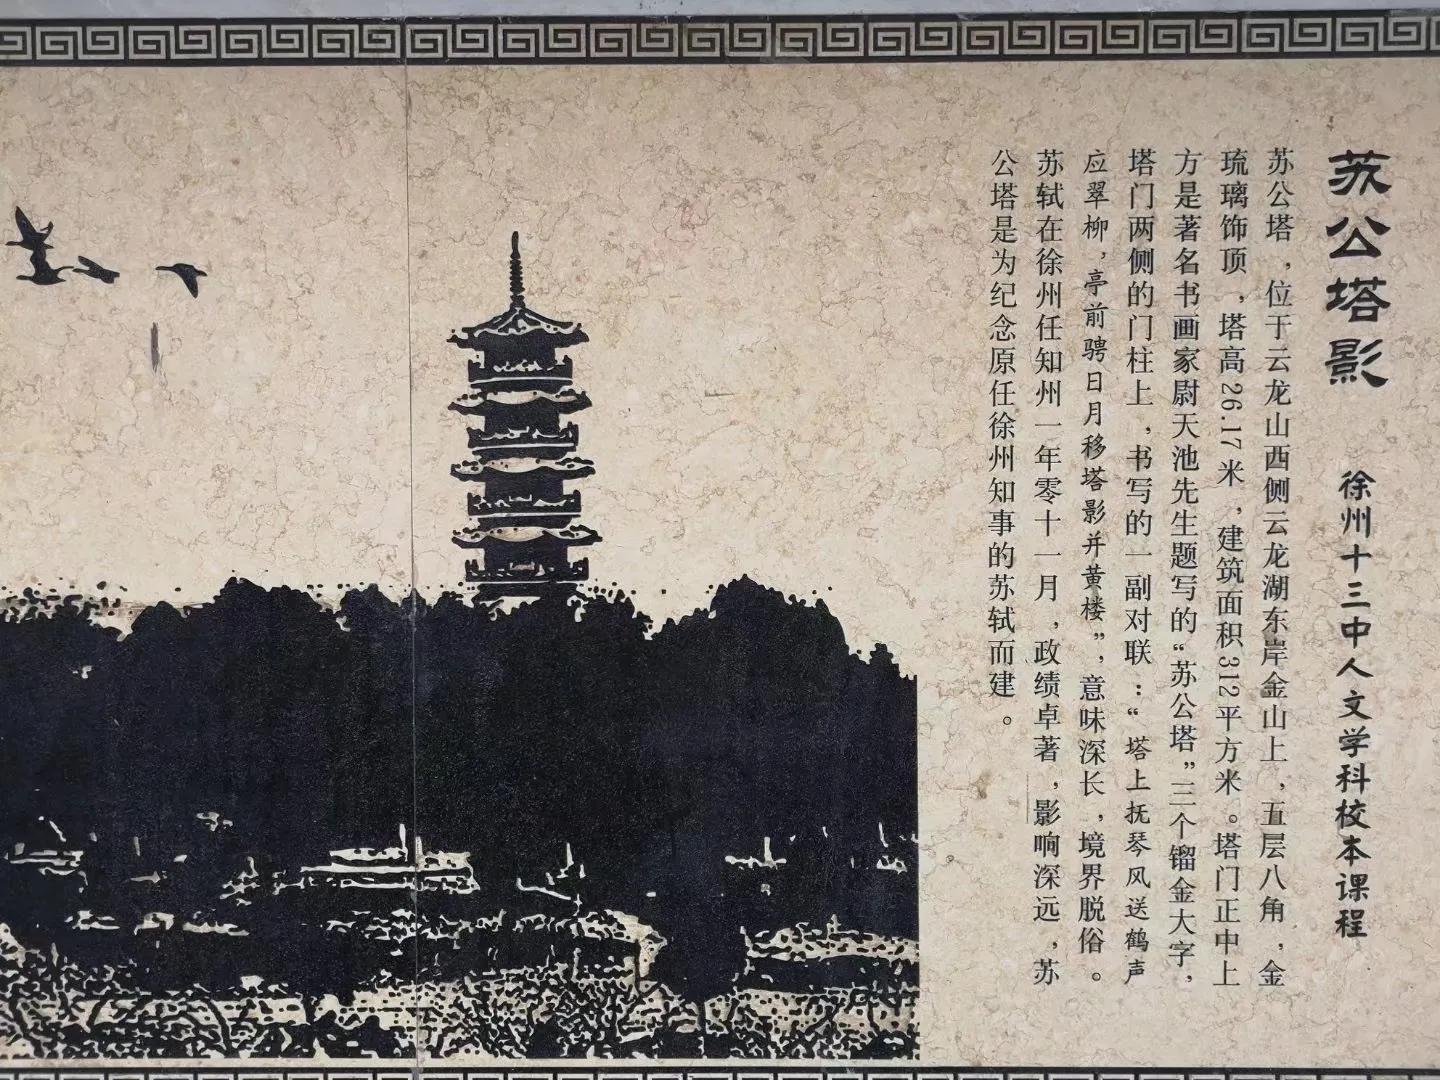 苏公塔影 徐州十三中人文学科校本课程
苏公塔，位于云龙山西侧云龙湖东岸金山上，五层八角，金
琉璃饰顶，塔高26.17米，建筑面积312平方米。塔门正中上
方是著名书画家尉天池先生题写的“苏公塔”三个镏金大字，
塔门两侧的门柱上，书写的一副对联：“塔上抚琴风送鹤声
应翠柳，亭前骋日月移塔影并黄楼”，意味深长，境界脱俗。
苏轼在徐州任知州一年零十一月，政绩卓著，影响深远，苏
公塔是为纪念原任徐州知事的苏轼而建。